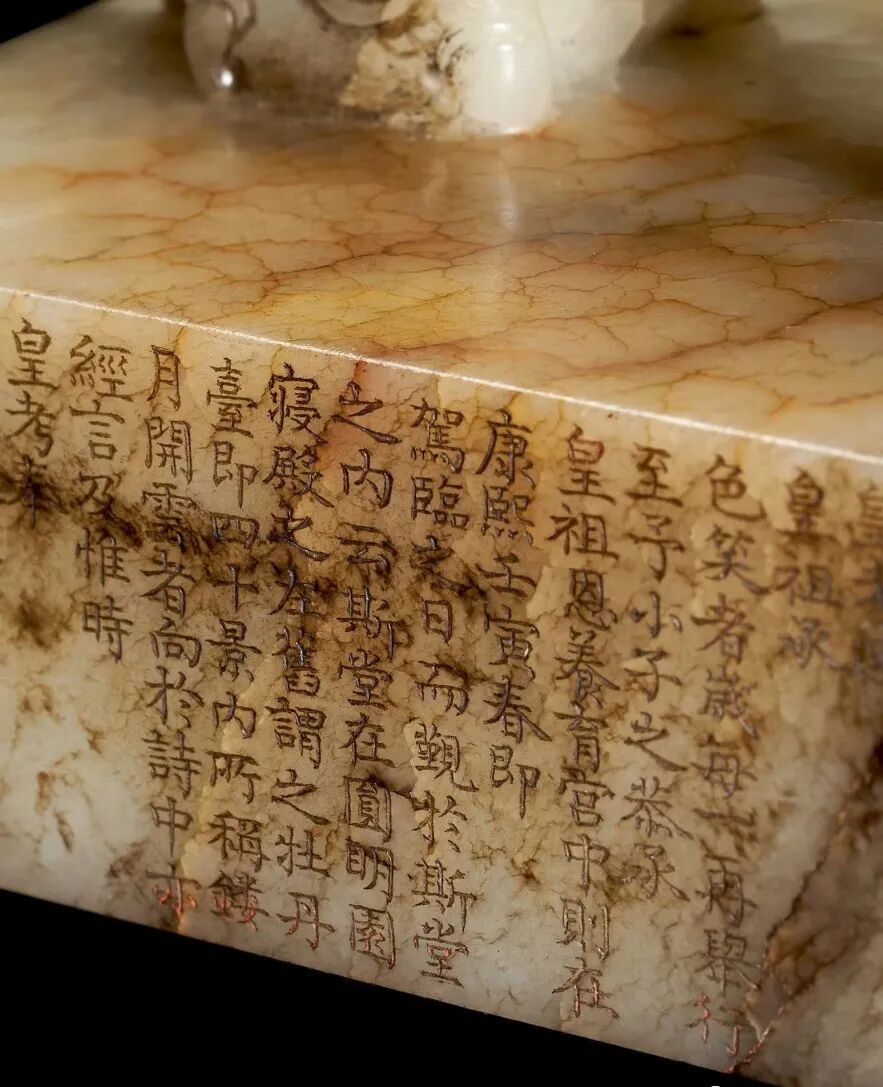 皇考
皇祖承
色笑者歲每一再舉行
至予小子之恭承
皇祖恩養育宮中則在
康熙壬寅春即
駕臨之日而覲於斯堂
之內云斯堂在圓明園
寢殿之左舊謂之牡丹
臺即四十景內所稱鏤
月開雲者向於詩中亦
經言及惟時
皇考奉